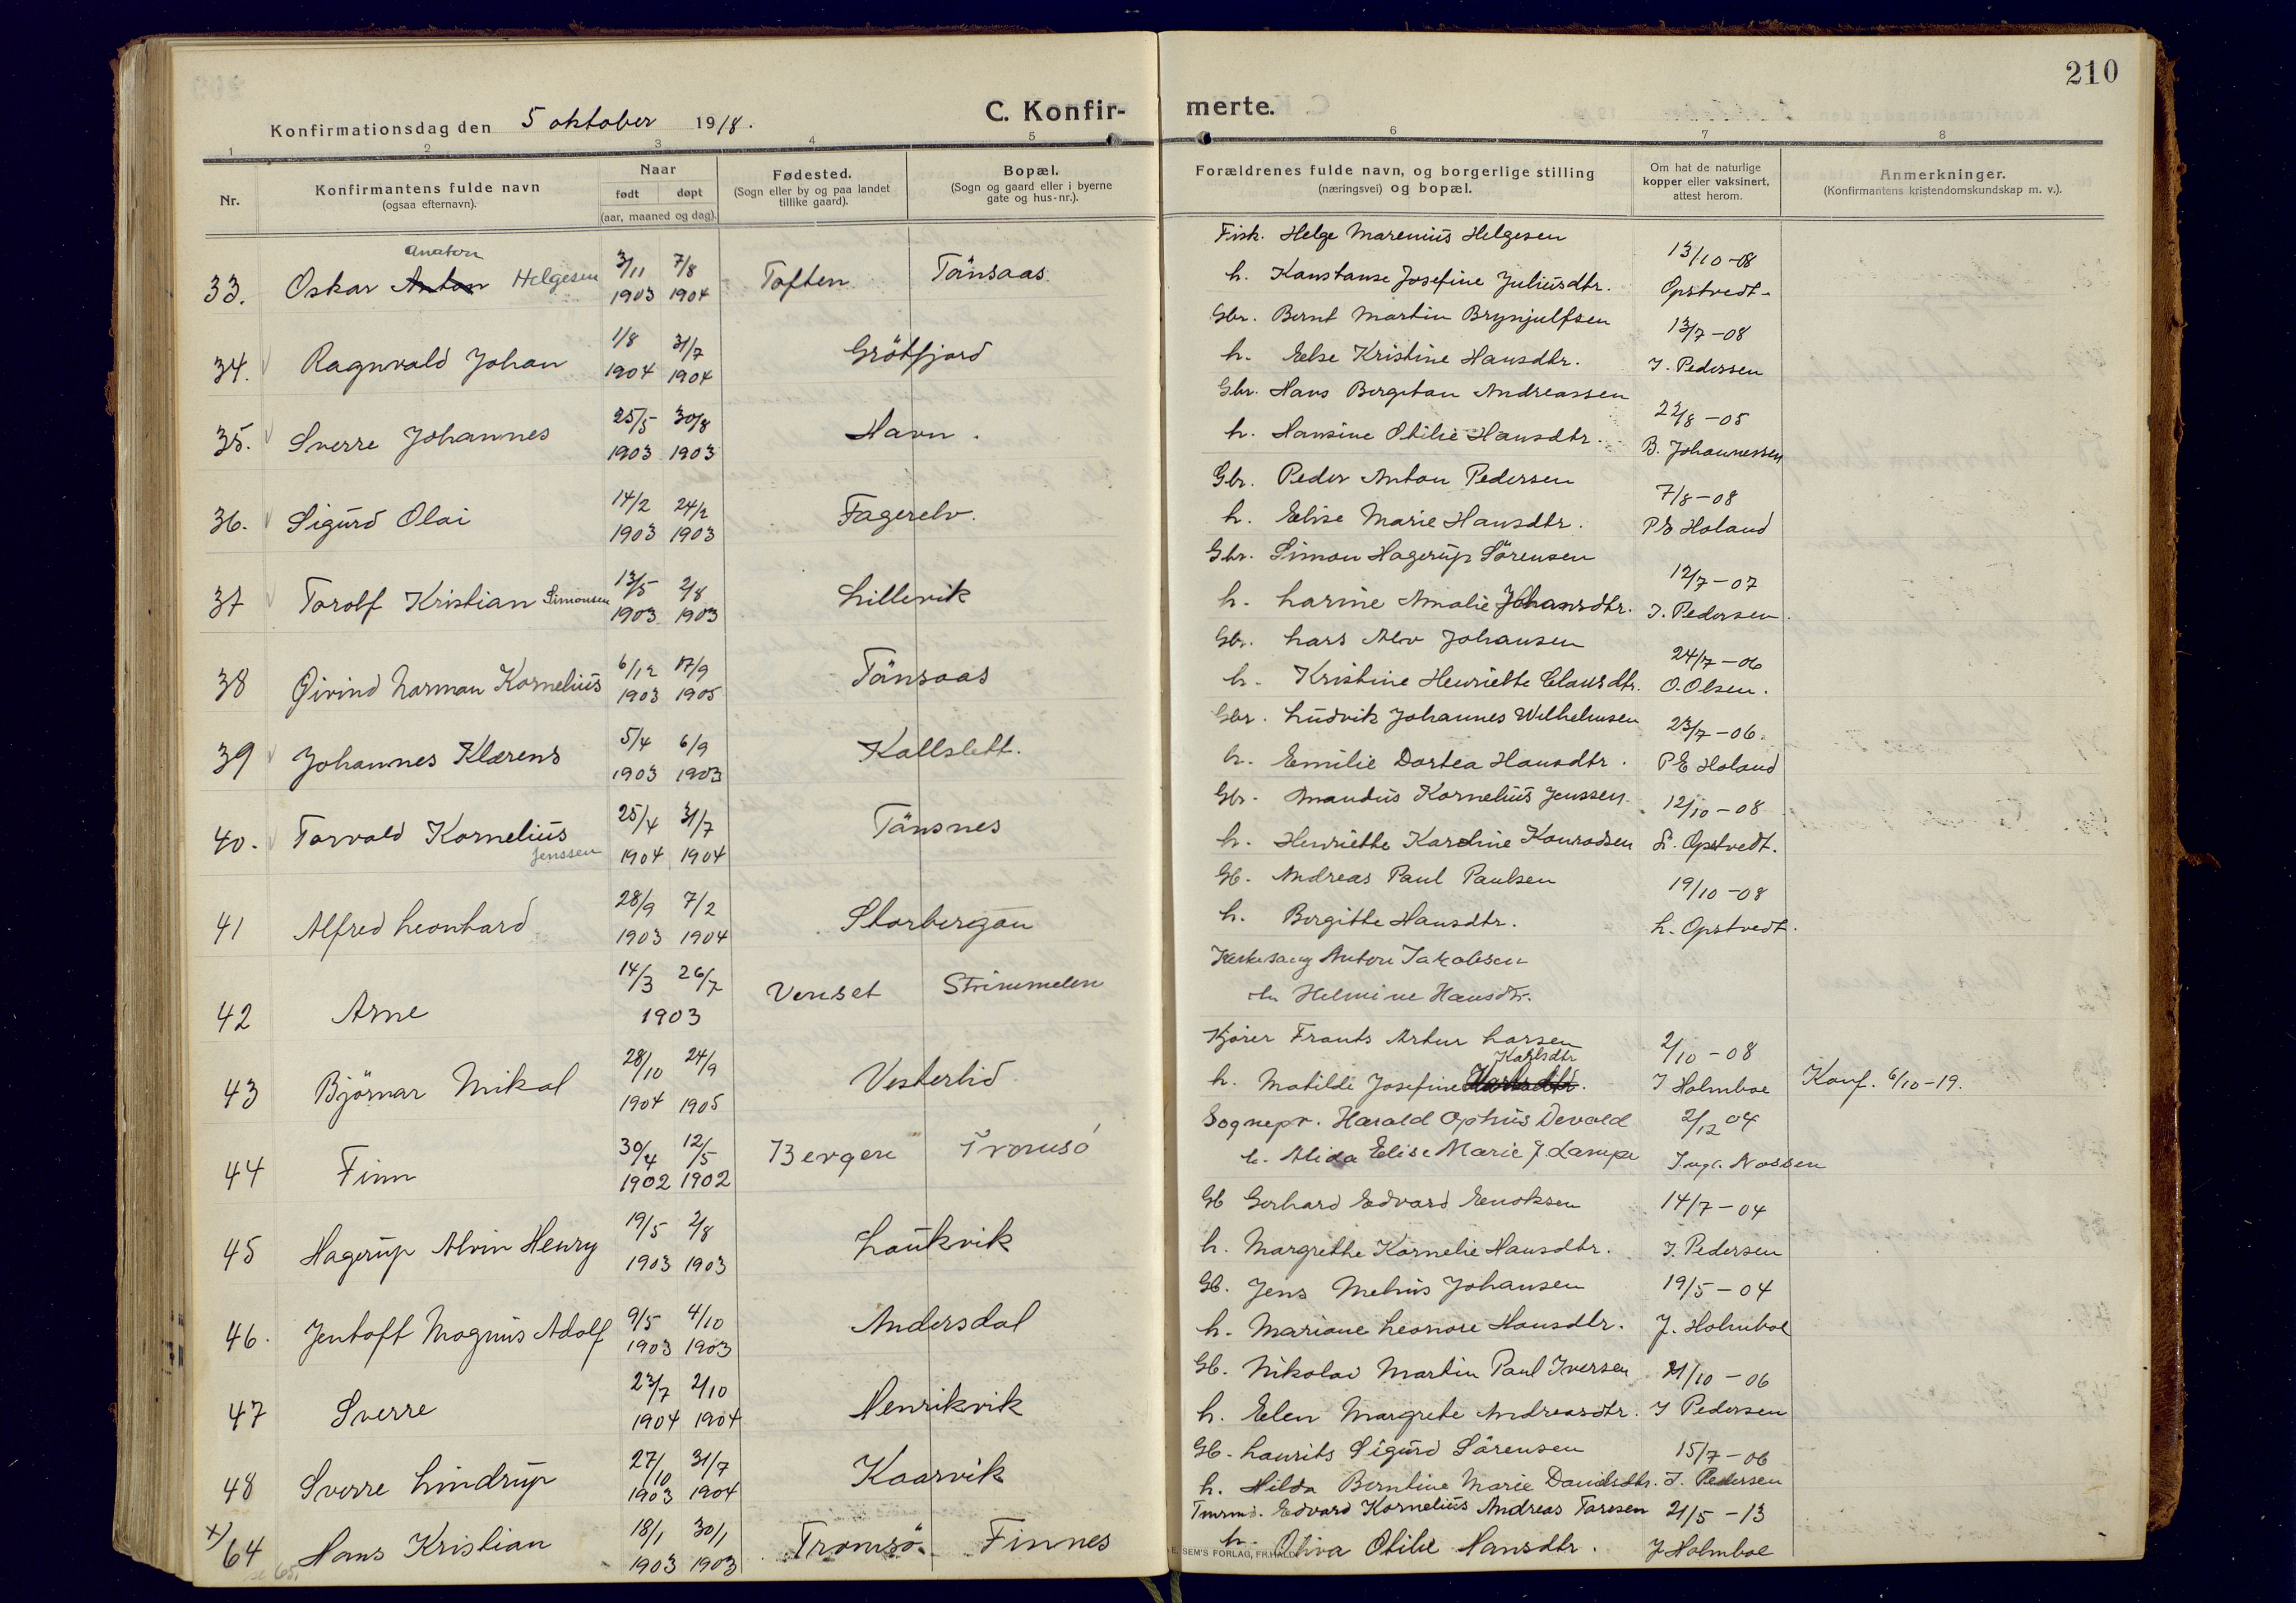 210
Konfirmationsdag den 5 oktober 1918.
C. Konfir-merte.
1 2 3 4 5 6 7 8
Nr.
Konfirmantens fulde navn
(ogsaa efternavn).
Naar
født døpt
(aar, maaned og dag).
Fødested.
(Sogn eller by og paa landet
tillike gaard).
Bopæl.
(Sogn og gaard eller i byerne
gate og hus-nr.).
Forældrenes fulde navn, og borgerlige stilling
(næringsvei) og bopæl.
Om hat de naturlige
kopper eller vaksinert,
attest herom.
Anmerkninger.
(Konfirmantens kristendomskundskap m. v.).
Anaton
33. Oskar Anton Helgesen 3/11 1903 7/8 1904 Toften Tänsaas
Fisk. Helge Marenius Helgesen 13/10-08
h. Konstanse Josefine Juliusdtr. Opstvedt
34. Ragnvald Johan 1/8 1904 31/7 1904 Grötfjord
Gbr. Bernt Martin Brynjulfsen 13/7-08
h. Else Kristine Hansdtr. J. Pedersen
35. Sverre Johannes 25/5 1903 30/8 1903 Havn.
Gbr. Hans Bergitan Andreassen 22/8-05
h. Hansine Otilie Hansdtr. B. Johannessen
36. Sigurd Olai 14/2 1903 24/2 1903 Fagerelv.
Gbr. Peder Anton Pedersen 7/8-08
h. Elise Marie Hansdtr. P E Holand
37 Torolf Kristian Simonsen 13/5 1903 2/8 1903 Lillevik
Gbr. Simon Hagerup Sörensen 12/7-07
h. Larine Amalie Johansdtr. J. Pedersen.
38 Øivind Norman Kornelius 6/12 1903 17/9 1905 Tänsaas
Gbr. Lars Alv Johansen 24/7-06
h. Kristine Henriette Clausdtr. O. Olsen.
39 Johannes Klærens 5/4 1903 6/9 1903 Kallslett.
Gbr. Ludvik Johannes Wilhelmsen 23/7-06.
h. Emilie Dortea Hansdtr. P E Holand
40. Torvald Kornelius Jenssen 25/4 1904 31/7 1904 Tänsnes
Gbr. Mandus Kornelius Jenssen. 12/10-08
h. Henriette Karoline Konradsen L. Opstvedt.
41 Alfred Leonhard 28/9 1903 7/2 1904 Storbergan
Gb. Andreas Paul Paulsen 19/10-08
h. Bergitte Hansdtr. L. Opstvedt.
42 Arne 14/3 26/7 1903 Venset Strimmelen
Kirkesang Anton Jakobsen
h. Helmine Hansdtr.
43 Björnar Mikal 28/10 1904 24/9 1905 Vesterlid
Kjörer Frants Artur Larsen 2/10-08
Karlsdtr
h. Matilde Josefine J Holmboe Konf. 6/10-19.
44 Finn 30/4 1902 12/5 1902 Bergen Tromsö
Sognepr. Harald Ophus Devold 2/12 04
h. Alida Elise Marie J Lampe Ingr. Nossen
45 Hagerup Alvin Henry 19/5 1903 2/8 1903 Laukvik
Gb Gerhard Edvard Enoksen 14/7-04
h. Margrethe Kornelie Hansdtr. J. Pedersen
46. Jentoft Magnus Adolf 9/5 1903 4/10 1903 Andersdal
Gb. Jens Mehus Johansen 19/5-04
h. Mariane Leonore Hansdtr. J. Holmboe
47 Sverre 23/7 1904 2/10 1904 Henrikvik
Gb. Nikolai Martin Paul Iversen 21/10-06
h. Elen Margrete Andreasdtr. J Pedersen
48 Sverre Lindrup 27/10 1903 31/7 1904 Kaarvik
Gb. Laurits Sigurd Sörensen 15/7-06
h. Hilda Berntine Marie Danielsdtr. J. Pedersen
x) 64 Hans Kristian 18/1 1903 30/1 1903 Tromsö. Finnes
se 65.
Tmrmd. Edvard Kornelius Andreas Toresen 21/5-13
h. Oliva Otilie Hansdtr. J Holmboe
E. SEM'S FORLAG, FR.HALD.